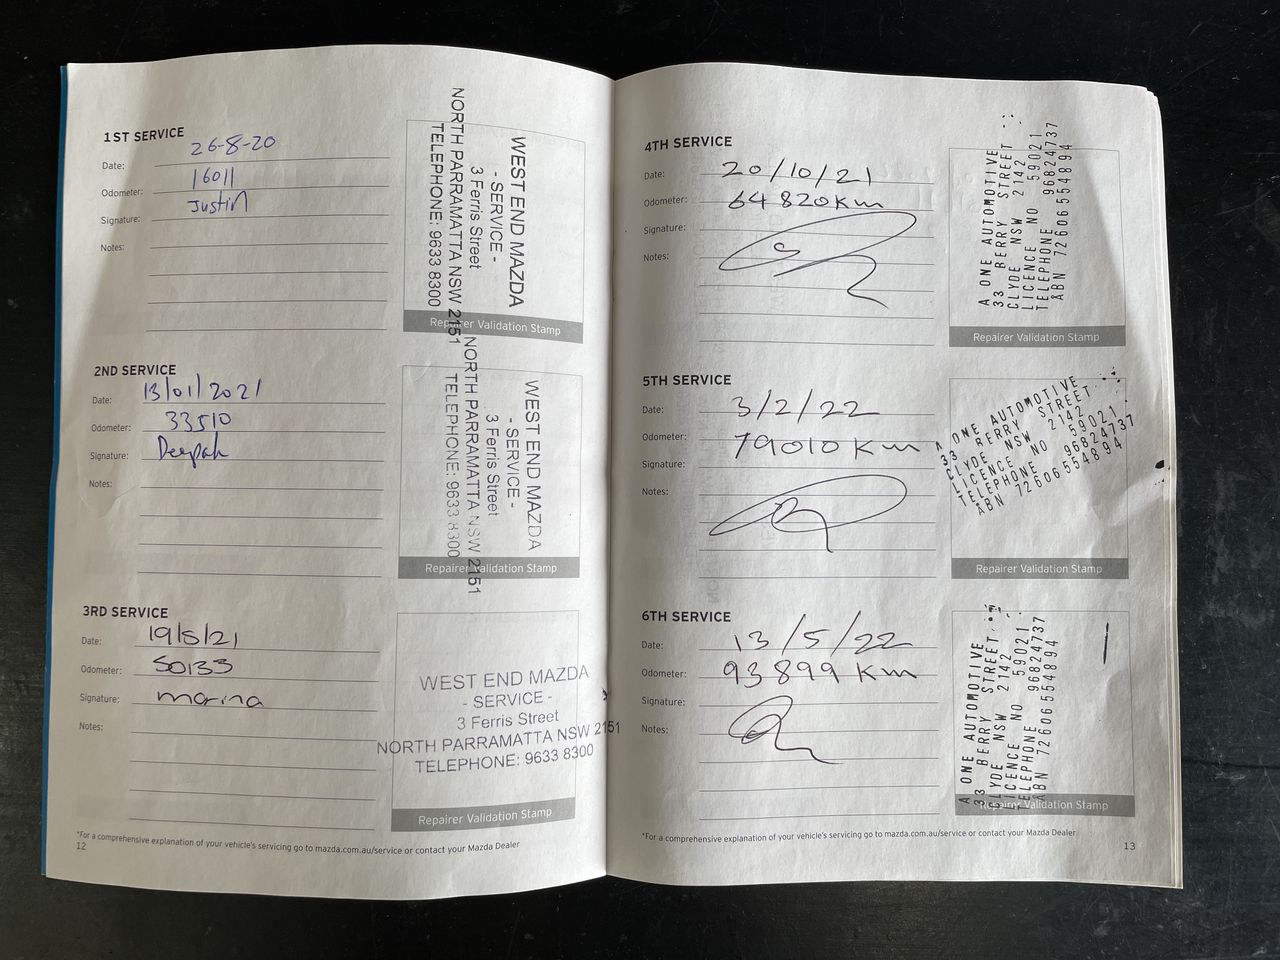 1ST SERVICE
Date: 26-8-20
Odometer: 16011
Signature: Justin
Notes:
WEST END MAZDA
- SERVICE -
3 Ferris Street
NORTH PARRAMATTA NSW 2151
TELEPHONE: 9633 8300
Repairer Validation Stamp
2ND SERVICE
Date: 13/01/2021
Odometer: 33510
Signature: Deepak
Notes:
WEST END MAZDA
- SERVICE -
3 Ferris Street
NORTH PARRAMATTA NSW 2151
TELEPHONE: 9633 8300
Repairer Validation Stamp
3RD SERVICE
Date: 19/5/21
Odometer: 50133
Signature: marina
Notes:
WEST END MAZDA
- SERVICE -
3 Ferris Street
NORTH PARRAMATTA NSW 2151
TELEPHONE: 9633 8300
Repairer Validation Stamp
*For a comprehensive explanation of your vehicle's servicing go to mazda.com.au/service or contact your Mazda Dealer
12
4TH SERVICE
Date: 20/10/21
Odometer: 64820km
Signature:
Notes:
A ONE AUTOMOTIVE
33 BERRY STREET
CLYDE NSW 2142
LICENCE NO 59021
TELEPHONE 96824737
ABN 72606554894
Repairer Validation Stamp
5TH SERVICE
Date: 3/2/22
Odometer: 79010 km
Signature:
Notes:
A ONE AUTOMOTIVE
33 BERRY STREET
CLYDE NSW 2142
LICENCE NO 59021
TELEPHONE 96824737
ABN 72606554894
Repairer Validation Stamp
6TH SERVICE
Date: 13/5/22
Odometer: 93899 km
Signature:
Notes:
A ONE AUTOMOTIVE
33 BERRY STREET
CLYDE NSW 2142
LICENCE NO 59021
TELEPHONE 96824737
ABN 72606554894
Repairer Validation Stamp
*For a comprehensive explanation of your vehicle's servicing go to mazda.com.au/service or contact your Mazda Dealer
13